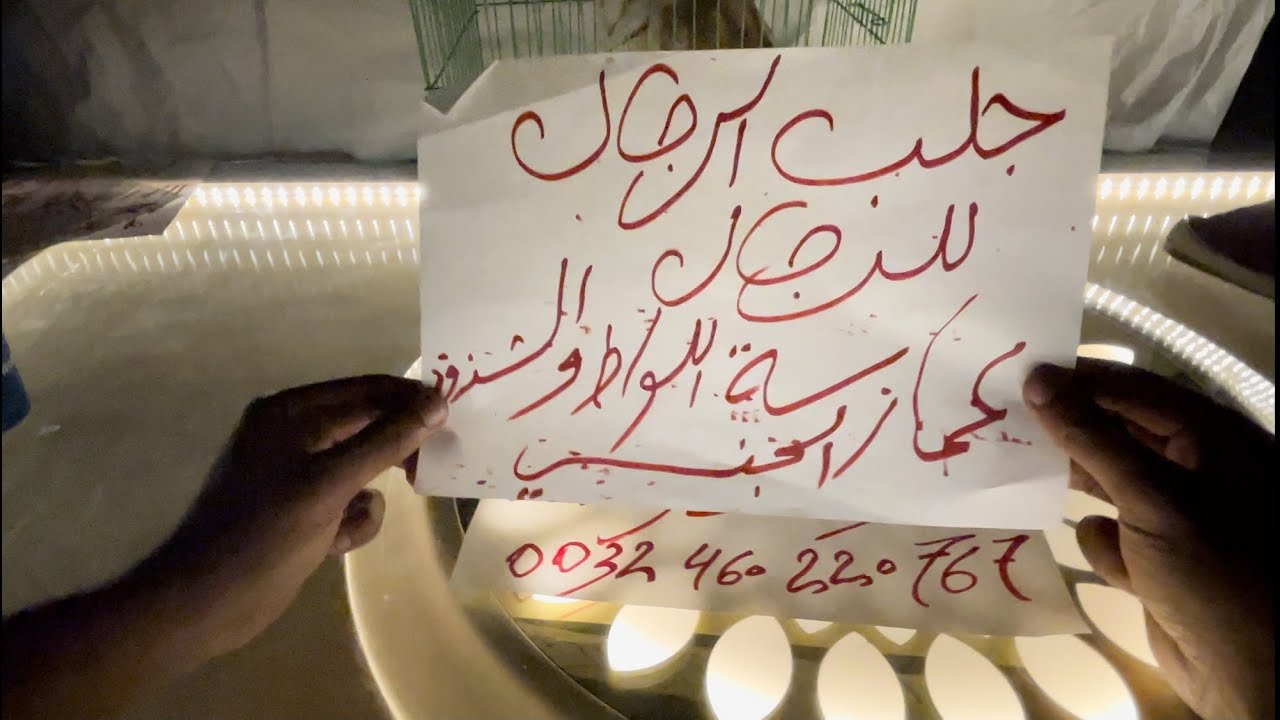 جلب الرجال
للرجال
لممارسة اللواط والشذوذ
الجنسي
0032 460 220 767